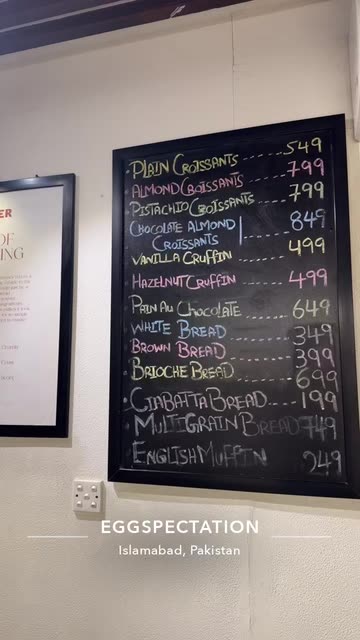 PLAIN CROISSANTS ------ 549
ALMOND CROISSANTS ------ 799
PISTACHIO CROISSANTS ------ 799
CHOCOLATE ALMOND CROISSANTS 849
VANILLA CRUFFIN ------ 499
HAZELNUT CRUFFIN ------ 499
PAIN AU CHOCOLATE ------ 649
WHITE BREAD ------ 349
BROWN BREAD ------ 399
BRIOCHE BREAD ------ 699
CIABATTA BREAD ---- 199
MULTIGRAIN BREAD 749
ENGLISH MUFFIN 249
EGGSPECTATION
Islamabad, Pakistan